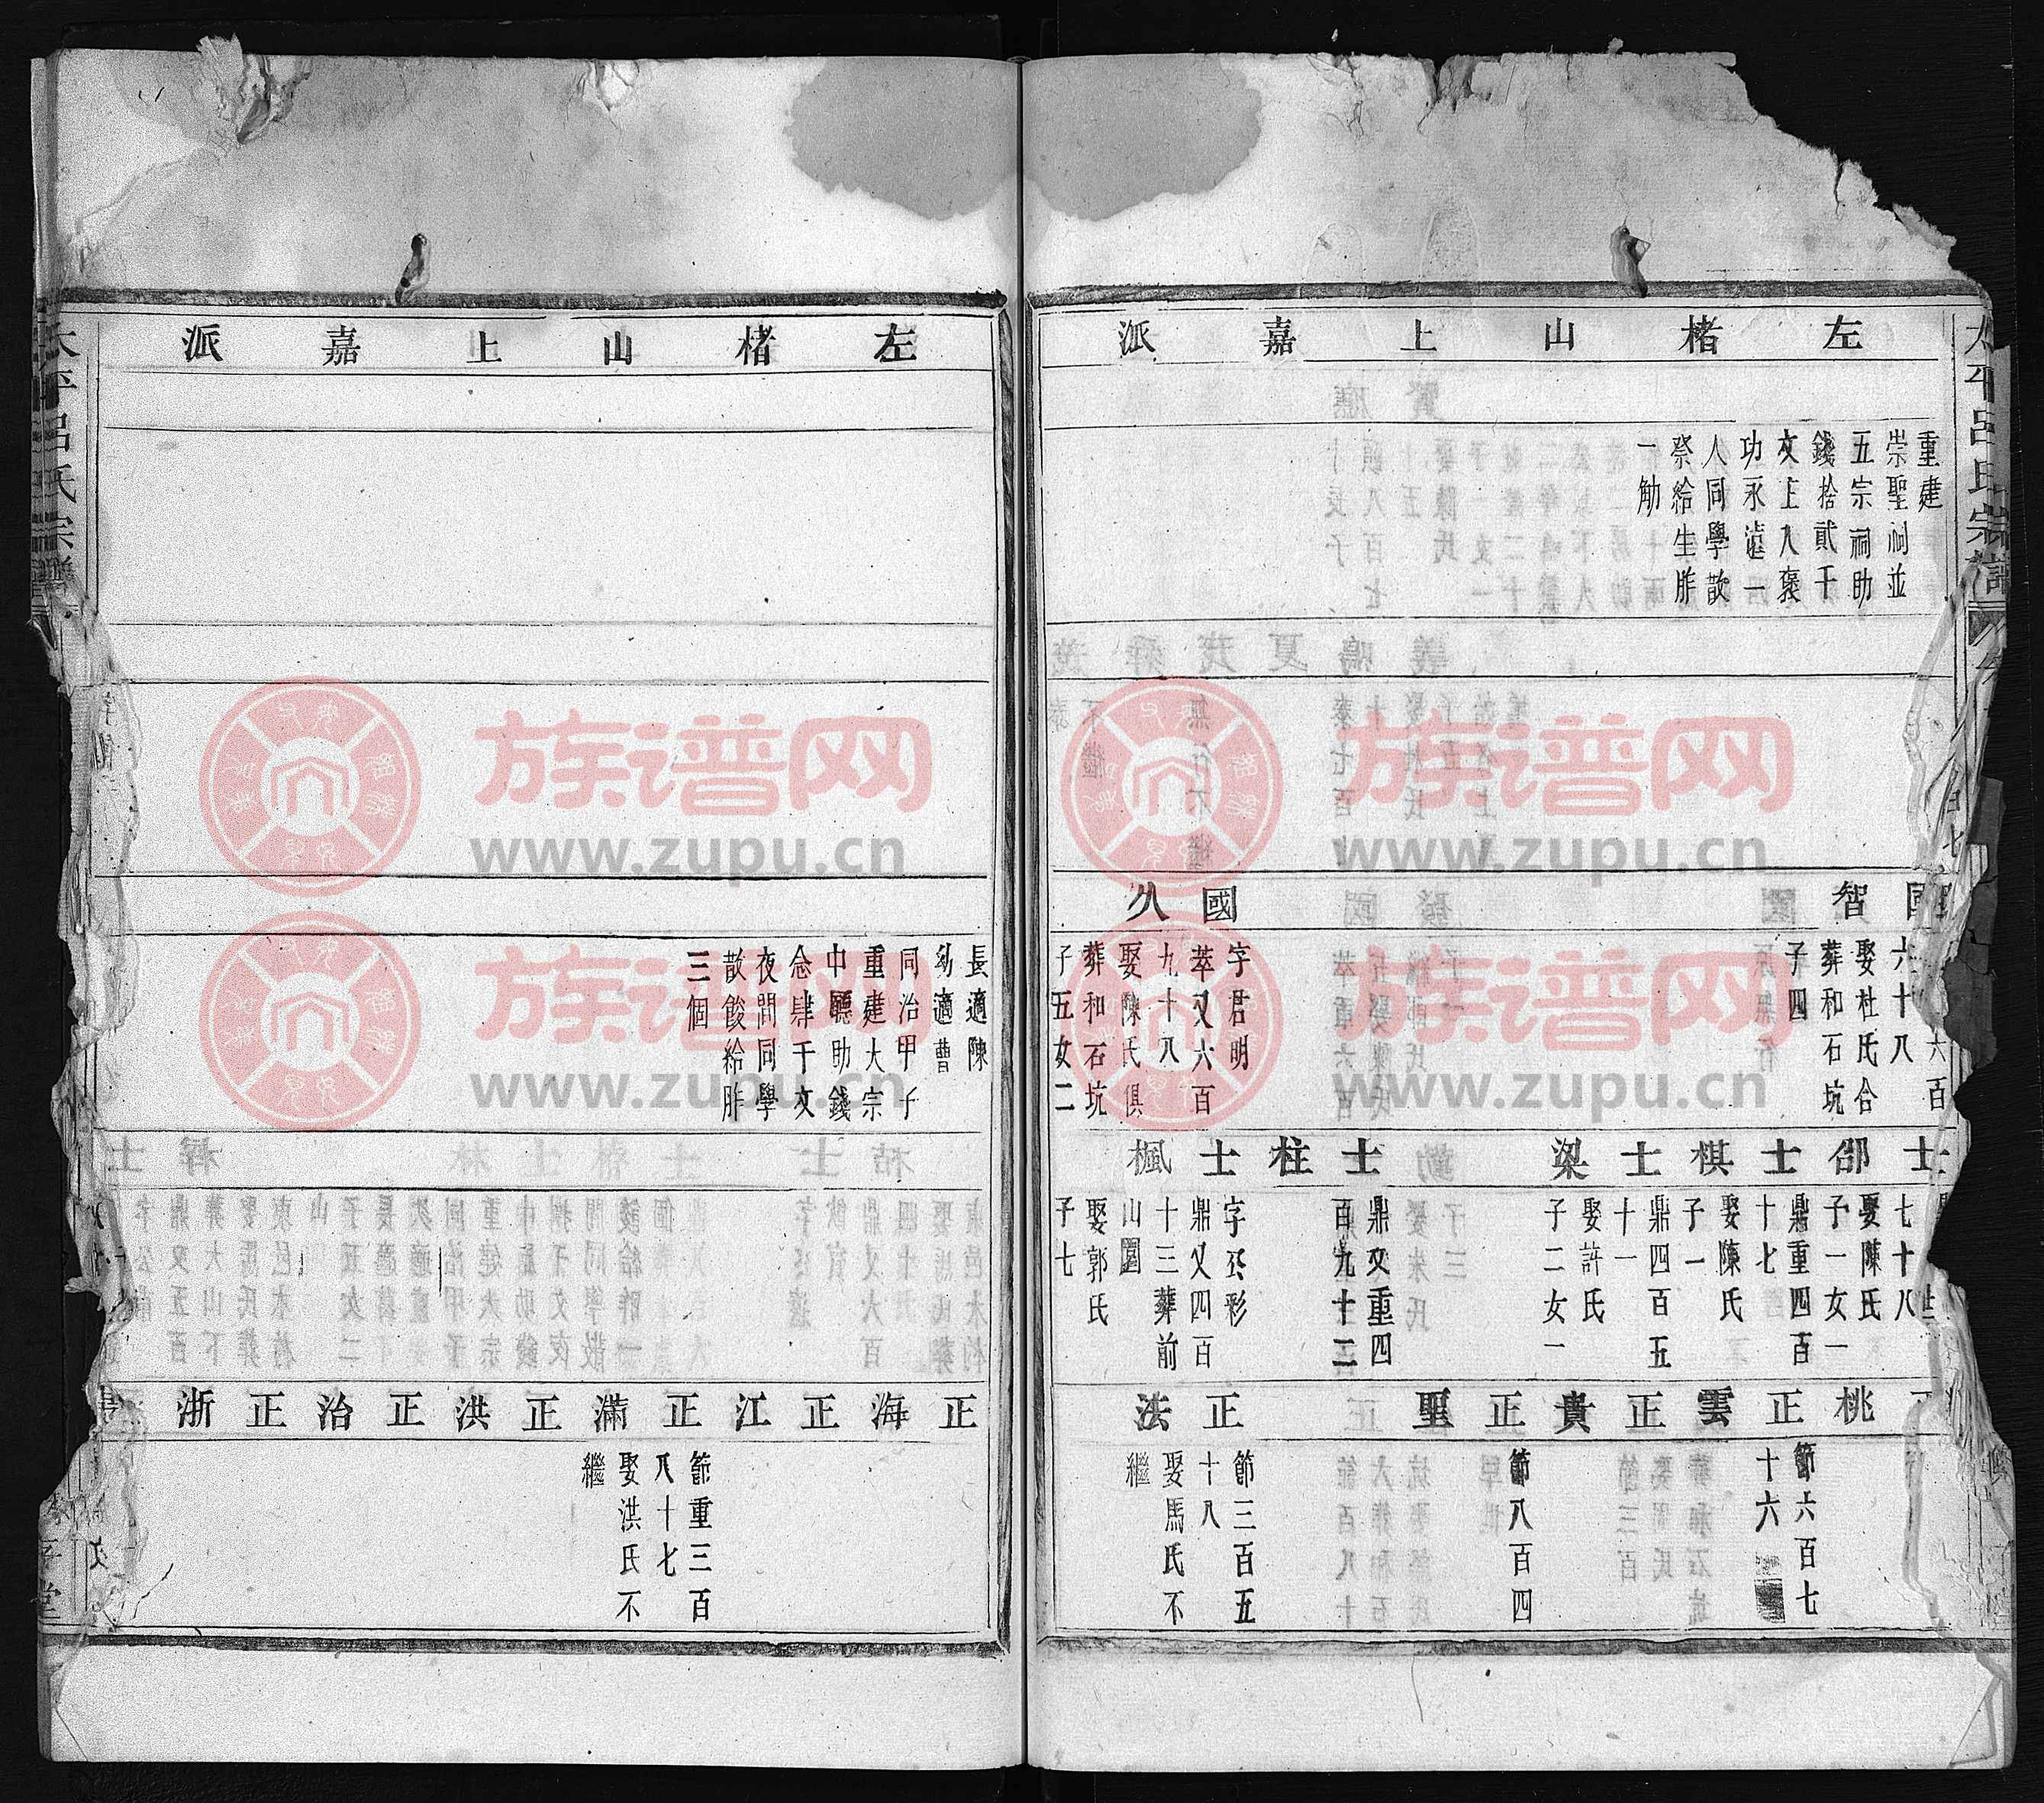 太平呂氏宗譜
左楮山上嘉派
重建
崇聖祠並
五宗祠助
錢捨貳千
文上入褒
功永遠一
人同學散
祭給生胙
一觔
國智
六百
六十八
娶杜氏合
葬和石坑
子四
國久
字君明
萃又六百
九十八
娶陳氏俱
葬和石坑
子五女二
士
七十八
娶陳氏
子一女一
邵
士棋
鼎重四百
十七
娶陳氏
子一
士梁
鼎四百五
十一
娶許氏
子二女一
士柱
鼎又重四
百九十二
士楓
字丕彩
鼎又四百
十三葬前
山園
娶郭氏
子七
桃
正雲
節六百七
十六
正貴
正聖
節八百四
正法
節三百五
十八
娶馬氏不
繼
左楮山上嘉派
長適陳
幼適曹
同治甲子
重建大宗
中廳助錢
念肆千文
夜間同學
散餕給胙
三個
正海
正江
正滿
節重三百
八十七
娶洪氏不
繼
正洪
正治
正浙
太平呂氏宗譜
族谱网
www.zupu.cn
族谱网
www.zupu.cn
族谱网
www.zupu.cn
族谱网
www.zupu.cn